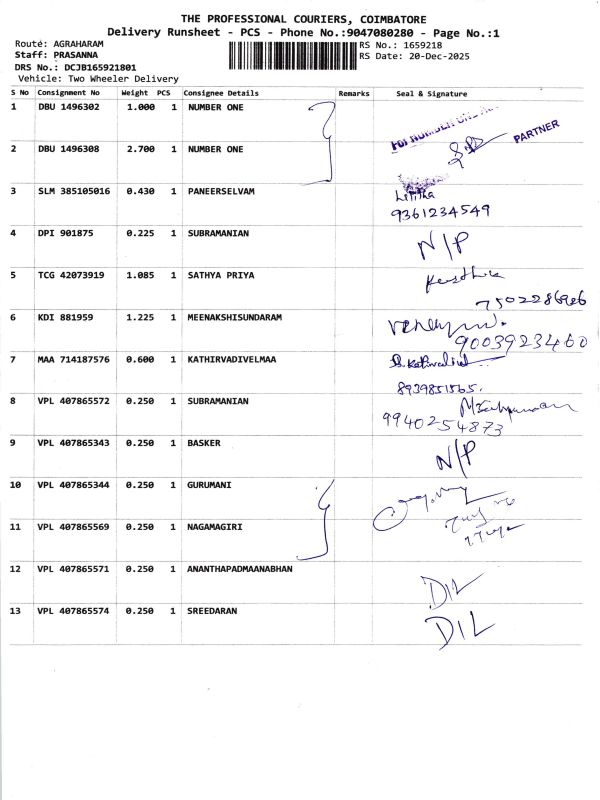 THE PROFESSIONAL COURIERS, COIMBATORE
Delivery Runsheet - PCS - Phone No.:9047080280 - Page No.:1
Route: AGRAHARAM RS No.: 1659218
Staff: PRASANNA RS Date: 20-Dec-2025
DRS No.: DCJB165921801
Vehicle: Two Wheeler Delivery
S No Consignment No Weight PCS Consignee Details Remarks Seal & Signature
1 DBU 1496302 1.000 1 NUMBER ONE
PARTNER
2 DBU 1496308 2.700 1 NUMBER ONE
3 SLM 385105016 0.430 1 PANEERSELVAM
9361234549
4 DPI 901875 0.225 1 SUBRAMANIAN N/P
5 TCG 42073919 1.085 1 SATHYA PRIYA
6 KDI 881959 1.225 1 MEENAKSHISUNDARAM
9003923460
7 MAA 714187576 0.600 1 KATHIRVADIVELMAA
8939851565.
8 VPL 407865572 0.250 1 SUBRAMANIAN
9940254873
9 VPL 407865343 0.250 1 BASKER N/P
10 VPL 407865344 0.250 1 GURUMANI
11 VPL 407865569 0.250 1 NAGAMAGIRI
12 VPL 407865571 0.250 1 ANANTHAPADMAANABHAN D/L
13 VPL 407865574 0.250 1 SREEDARAN D/L